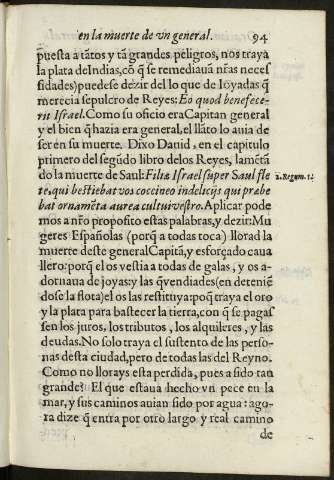 en la muerte de vn general. 94
puesta a tãtos y tã grandes peligros, nos traya
la plata deIndias, cõ q̃ se remediauã nr̃as neces
sidades) puedese dezir del lo que de Ioyadas q̃
merecia sepulcro de Reyes: Eo quod benefece-
rit Israel. Como su oficio era Capitan general
y el bien q̃hazia era general, el llãto lo auia de
ser en su muerte. Dixo Dauid, en el capitulo
primero del segũdo libro delos Reyes, lamẽtã
do la muerte de Saul: Filiæ Israel super Saul fle
te, qui bestiebat vos coccineo indelicijs qui præbe
bat ornamẽta aurea cultui vestro. Aplicar pode
mos a nr̃o proposito estas palabras, y dezir: Mu
geres Españolas (porq̃ a todas toca) llorad la
muerte deste general Capitã, y esforçado caua
llero: porq̃ el os vestia a todas de galas, y os a-
dornaua de joyas: y las q̃vendiades (en deteniẽ
dose la flota) el os las restituya: porq̃ traya el oro
y la plata para bastecer la tierra, con q̃ se pagas
sen los juros, los tributos, los alquileres, y las
deudas. No solo traya el sustento de las perso-
nas desta ciudad, pero de todas las del Reyno.
Como no llorays esta perdida, pues a sido tan
grande? El que estaua hecho vn pece en la
mar, y sus caminos auian sido por agua: ago-
ra dize q̃ entra por otro largo y real camino
de
2. Regum. 1.